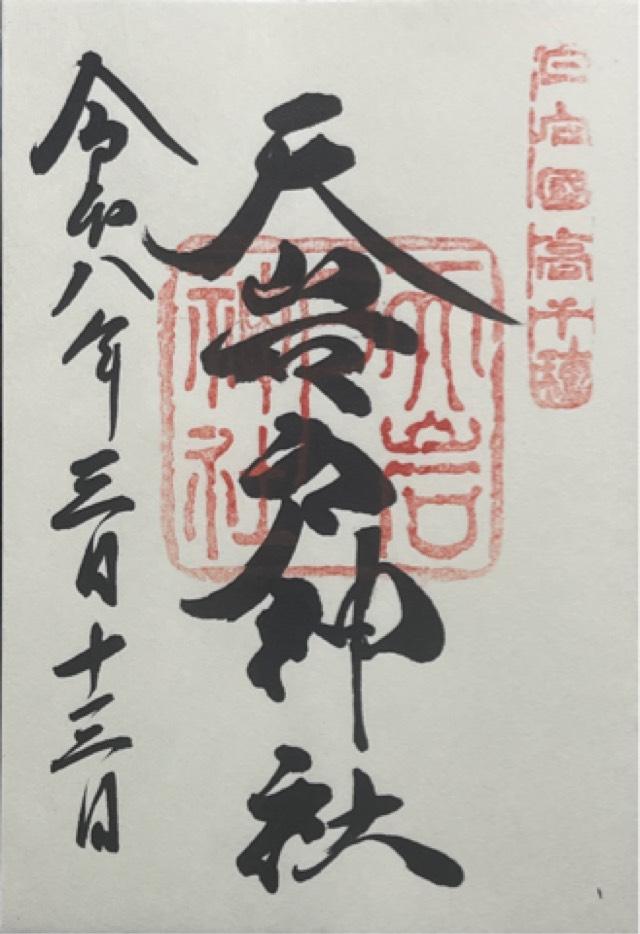 日向國高千穂
天岩戸神社
天岩
神社
令和八年三月十三日